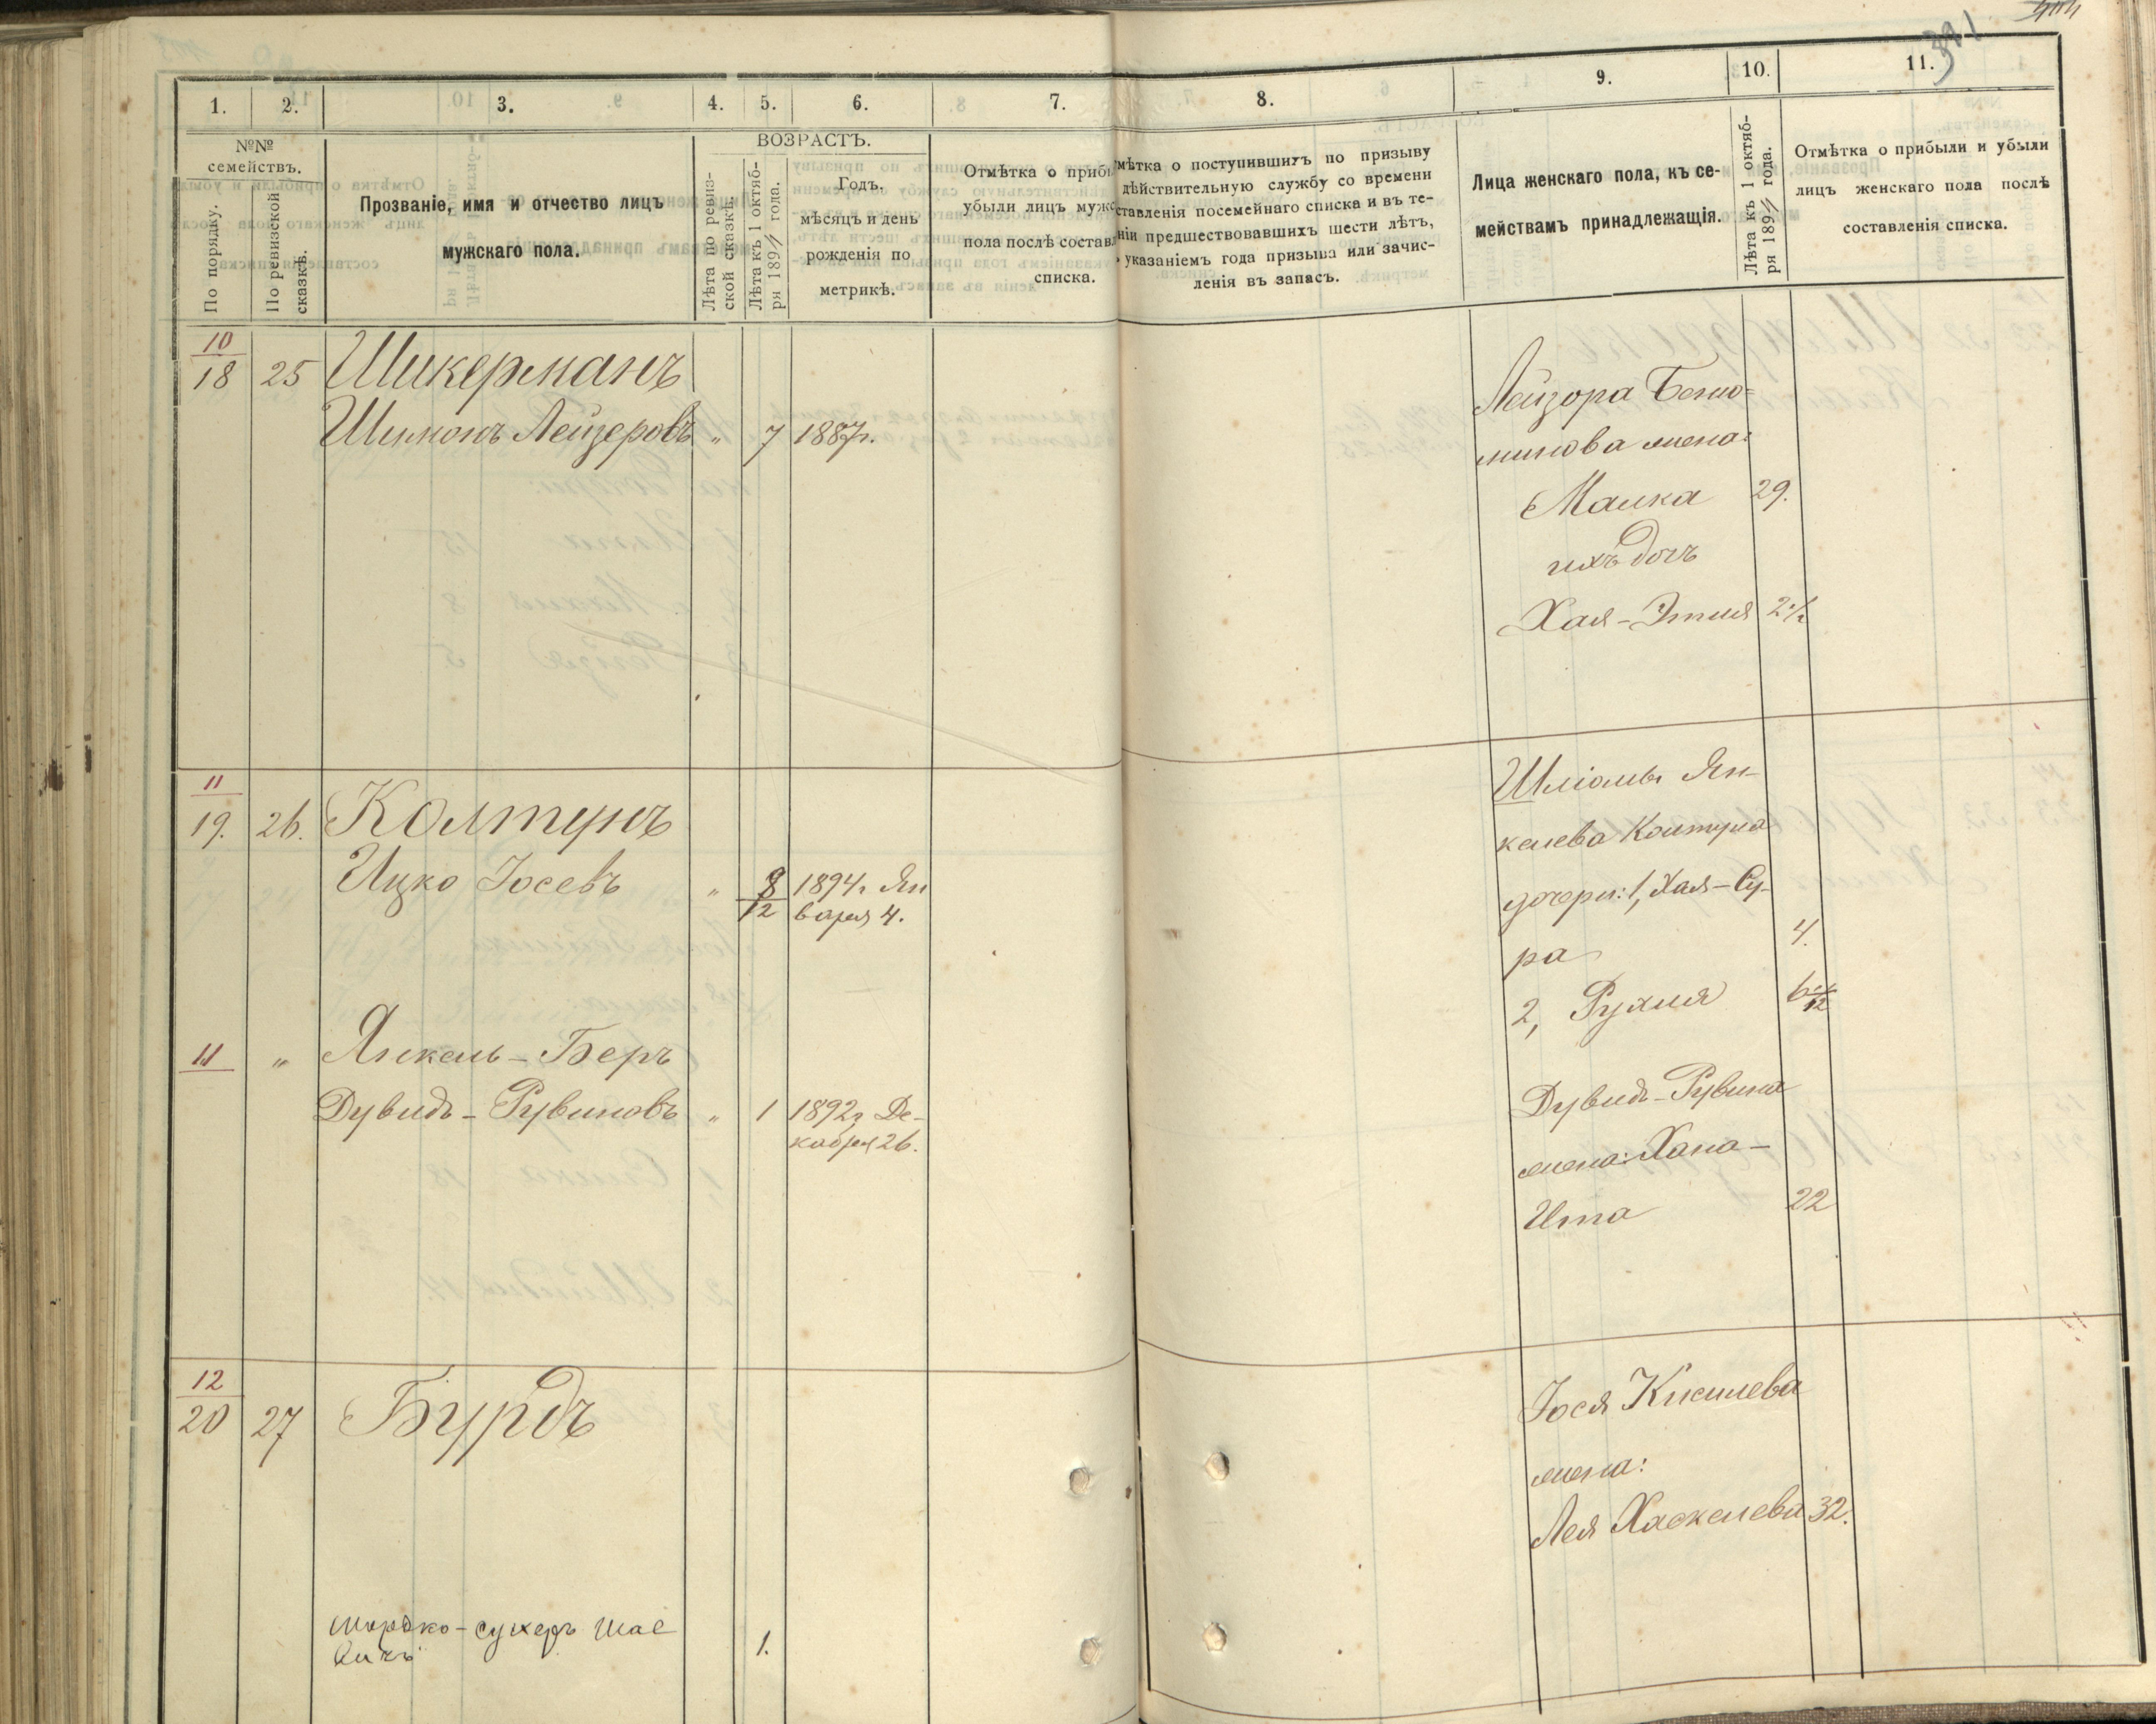 391
1. 2. 3. 4. 5. 6. 7. 8. 9. 10. 11.
№№
семействъ.
По порядку.
По ревизской
сказкѣ.
Прозваніе, имя и отчество лицъ
мужскаго пола.
ВОЗРАСТЪ.
Лѣта по ревиз-
ской сказкѣ.
Лѣта къ 1 октяб-
ря 1894 года.
Годъ.
мѣсяцъ и день
рожденія по
метрикѣ.
Отмѣтка о приб
убыли лицъ мужс
пола послѣ состав
списка.
мѣтка о поступившихъ по призыву
дѣйствительную службу со времени
ставленія посемейнаго списка и въ те-
ніи предшествовавшихъ шести лѣтъ,
указаніемъ года призыва или зачис-
ленія въ запасъ.
Лица женскаго пола, къ се-
мействамъ принадлежащія.
Лѣта къ 1 октяб-
ря 1894 года.
Отмѣтка о прибыли и убыли
лицъ женскаго пола послѣ
составленія списка.
10
18 25 Шикерманъ
Шимонъ Лейзеровъ „ 7 1887г.
Лейзора Бенію-
минова жена:
Малка 29.
ихъ дочь
Хая-Этля 2 1/2
11
19. 26. Колтунъ
Ицко Іосевъ „ 8/12 1894г. Ян
варя 4.
Шліомы Ян-
келева Колтуна
дочери: 1, Хая-Су-
ра 4.
2, Рухля
11 „ Янкель-Беръ
Дувидъ-Рувиновъ „ 1 1892г. Де-
кабря 26.
Дувидъ-Рувина
жена: Хана-
Ита 22
12
20 27 Бурдъ
Іося Кисилева
жена:
Лея Хаскелева 32.
Мордко-Сухеръ 1.